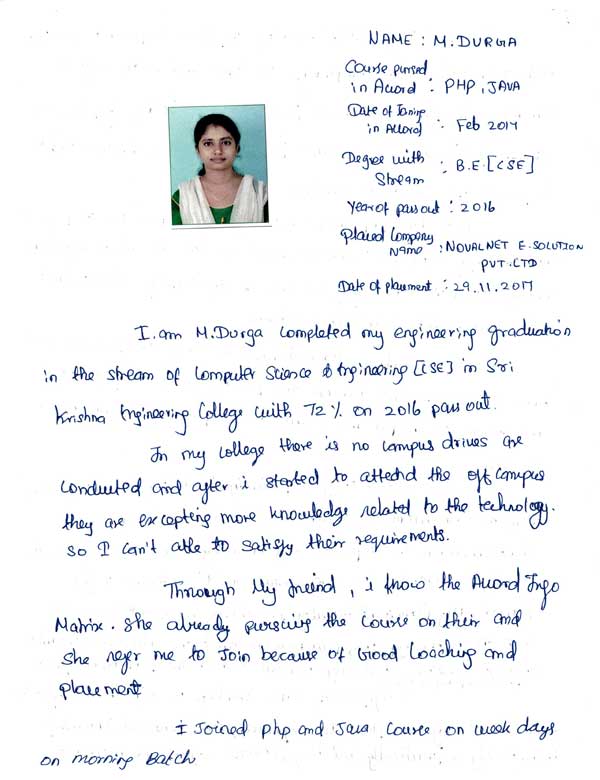 NAME : M.DURGA
Course pursed
in Accord : PHP, JAVA
Date of Joning
in Accord : Feb 2017
Degree with
Stream : B.E.[CSE]
Year of pass out : 2016
Placed Company
Name : NOVALNET E-SOLUTION
PVT.LTD
Date of placement : 29.11.2017
I am M.Durga completed my engineering graduation
in the stream of Computer Science & Engineering [CSE] in Sri
Krishna Engineering College with 72% on 2016 pass out.
In my college there is no campus drives are
conducted and after i started to attend the off campus
they are excepting more knowledge related to the technology.
so I can't able to satisfy their requirements.
Through My friend, i know the Accord Info
Matrix. She already pursuing the course on their and
she refer me to Join because of Good Coaching and
placement
I Joined php and Java Course on week days
on morning Batch